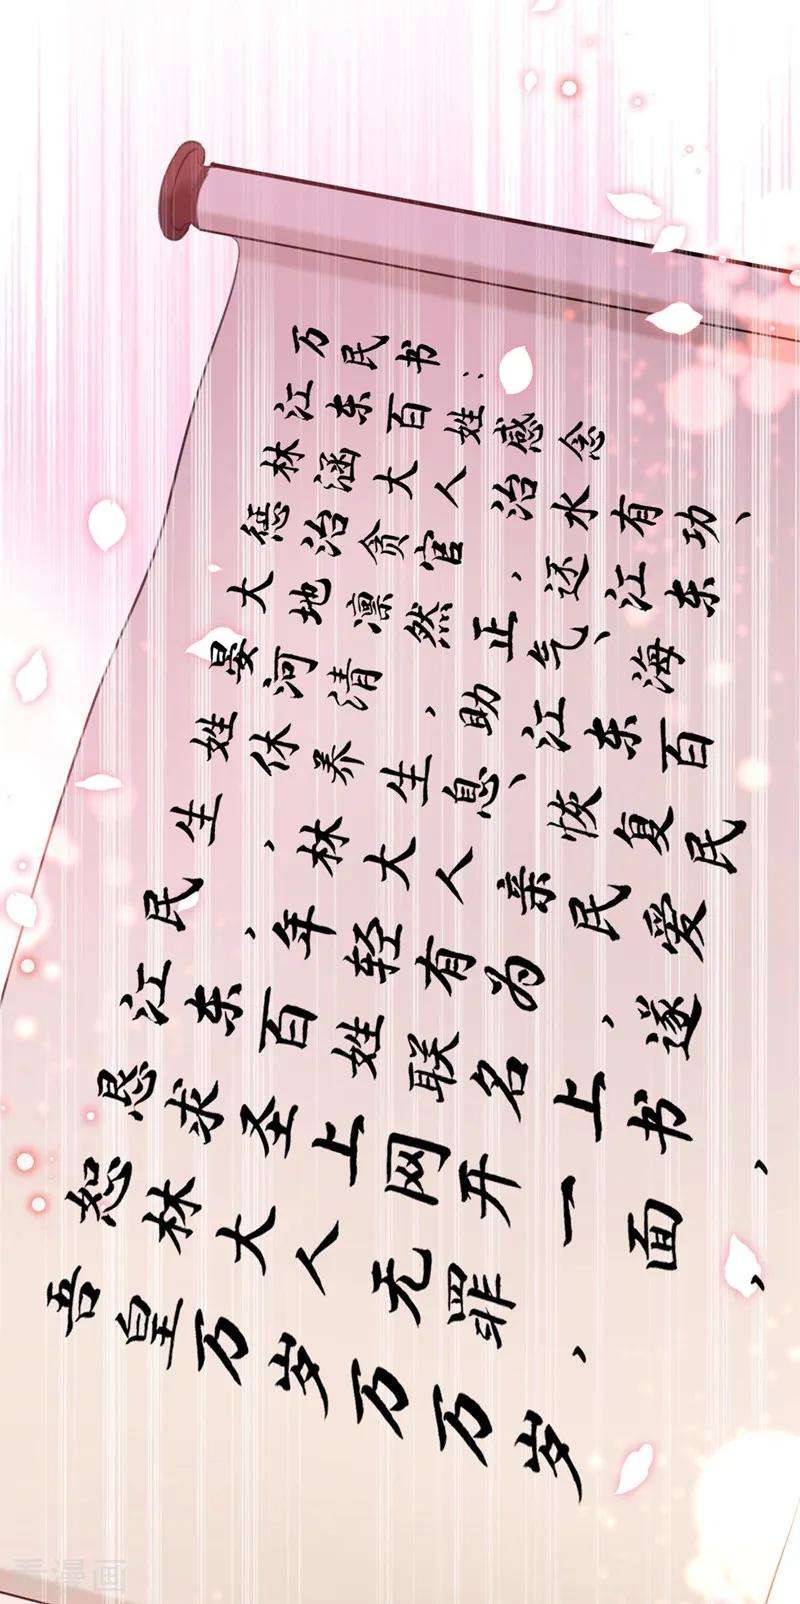 万民书:
江东百姓感念
林涵大人治水有功、
惩治贪官,还江东
大地凛然正气、海
晏河清,助江东百
姓休养生息、恢复民
生,林大人亲民爱
民、年轻有为,遂
江东百姓联名上书,
恳求圣上网开一面,
恕林大人无罪,
吾皇万岁万万岁
看漫画